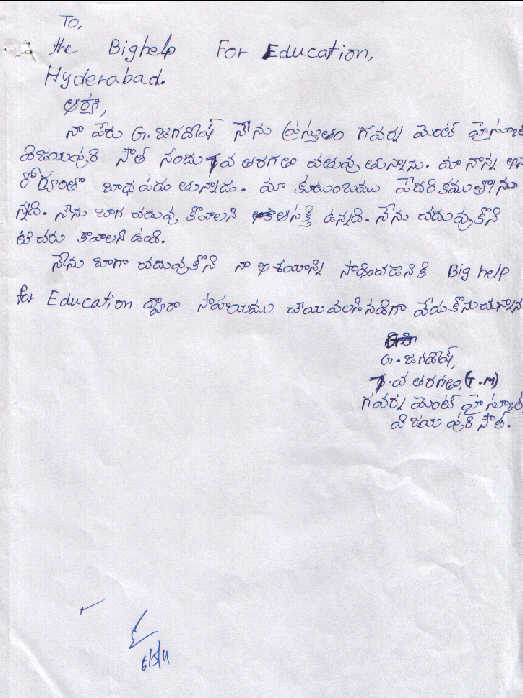 To,
the Bighelp For Education,
Hyderabad.
ఆర్యా,
నా పేరు G. జగదీష్ నేను ప్రస్తుతం గవర్న మెంట్ హైస్కూల్
విజయపురి సౌత్ నందు 7వ తరగతి చదువు తున్నాను. మా నాన్న
బాధ పడు తున్నాడు. మా కుటుంబము పేదరికములో
న్నది. నేను బాగ చదువు కోవాలని ఆసక్తి ఉన్నది. నేను చదువుకొని
టీచరు కావాలని ఉంది.
నేను బాగా చదువుకొని నా ఆశయాన్ని సాధించడానికి Big help
for Education ద్వారా సహాయము చేయవలసినదిగా వేడుకొనుచున్నాను
G. జగదీష్,
7.వ తరగతి (T.M)
గవర్న మెంట్ హై స్కూల్
విజయ పురి సౌత్.